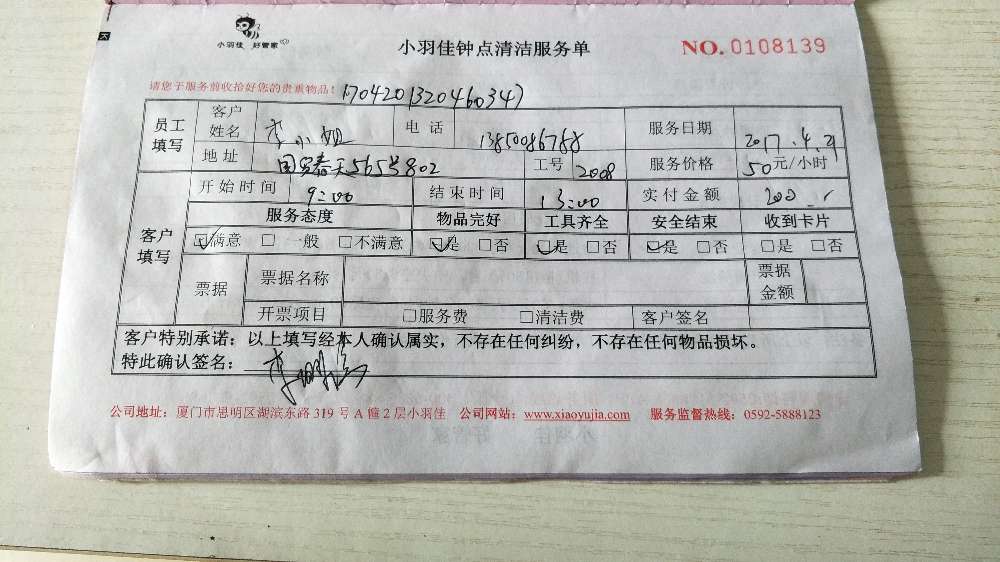 小羽佳 好管家
小羽佳钟点清洁服务单
NO. 0108139
请您于服务前收拾好您的贵重物品!
1704201320460347
员工填写 客户姓名 李小姐 电话 13850086788 服务日期 2017.4.21
地址 国贸春天565号802 工号 2008 服务价格 50元/小时
客户填写 开始时间 9:00 结束时间 13:00 实付金额 200
服务态度 物品完好 工具齐全 安全结束 收到卡片
☑满意 □一般 □不满意 ☑是 □否 ☑是 □否 ☑是 □否 □是 □否
票据 票据名称 票据金额
开票项目 □服务费 □清洁费 客户签名
客户特别承诺：以上填写经本人确认属实，不存在任何纠纷，不存在任何物品损坏。
特此确认签名：
公司地址：厦门市思明区湖滨东路 319 号 A 幢 2 层小羽佳 公司网站：www.xiaoyujia.com 服务监督热线：0592-5888123